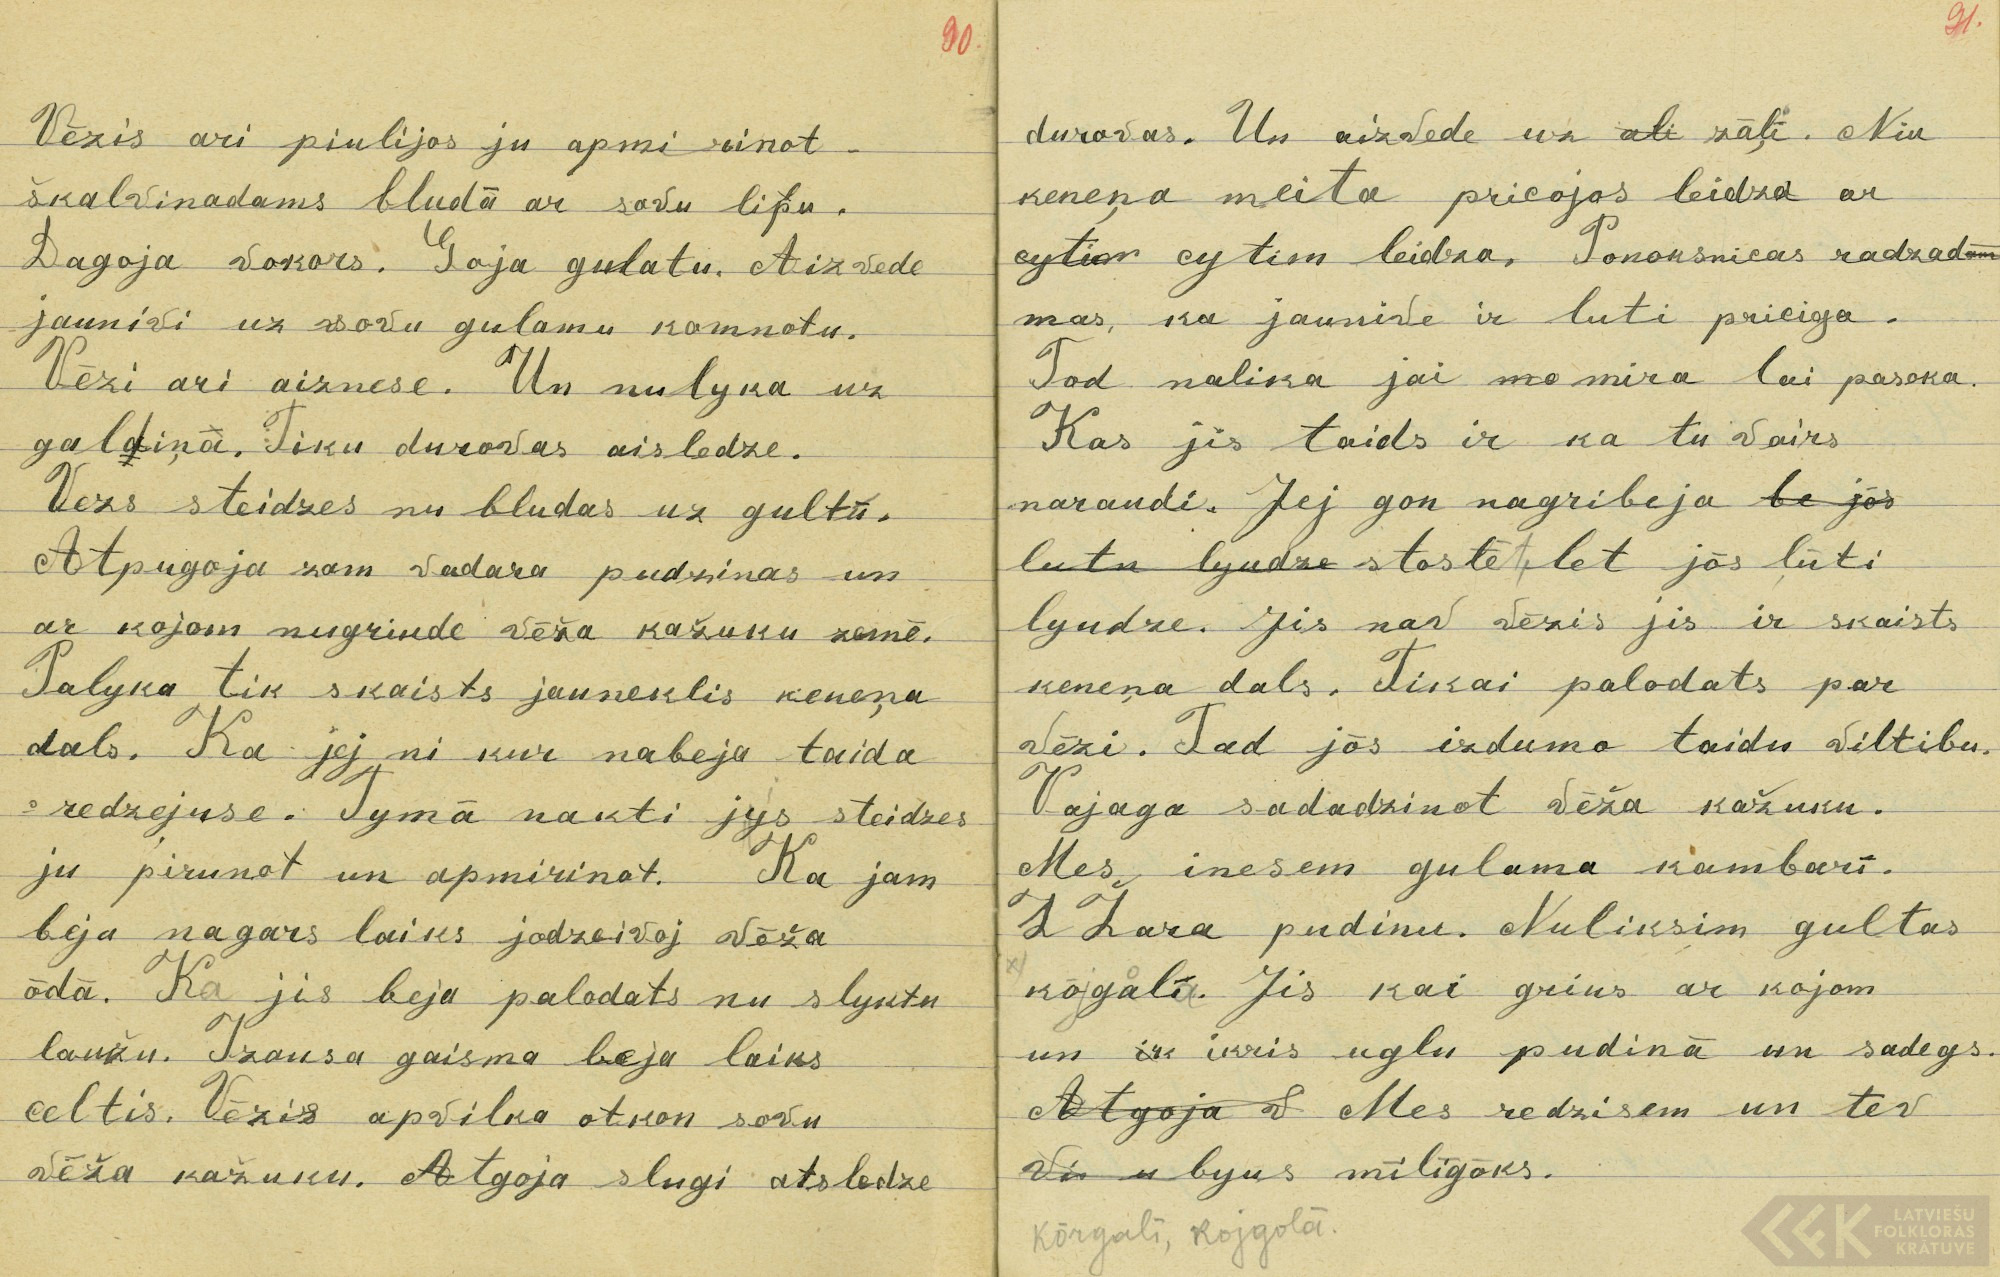 90.
Vēzis ari piulijos ju apmi rinot -
škalvinadams bludā ar sovu lipu.
Dagoja vokors. Goja gulatu. Aizvede
jaunivi uz sovu gulamu komnotu.
Vēzi ari aiznese. Un nulyka uz
galdiņā. Tiku durovas aisledze.
Vezs steidzes nu bludas uz gultu.
Atpugoja zam vadara pudzinas un
ar kojom nugriude vēža kažuku zemē.
Palyka tik skaists jauneklis keneņa
dals. Ka jej ni kur nabeja taida
redzejuse. Tymā nakti jys steidzes
ju pirunot un apmirinot. Ka jam
beja nagars laiks jodzeivoj vēža
ōdā. Ka jis beja palodats nu slyktu
laužu. Izausa gaisma beja laiks
celtis. Vēzis apvilka otkon sovu
vēža kažuku. Atgoja slugi atsledze
91.
durovas. Un aizvede uz ali zāļi. Niu
keneņa meita pricojos leidza ar
cytim cytim leidza. Ponoksnicas radzadam
mas, ka jaunive ir luti priciga.
Tod nalika jai mo mira lai pasoka.
Kas jis taids ir ka tu vairs
naraudi. Jej gon nagribeja be jōs
lutu lyudze stostēt let jōs lūti
lyudze. Jis nav vēzis jis ir skaists
keneņa dals. Tikai palodats par
vēzi. Tad jōs izdumo taidu viltibu.
Vajaga sadadzinot vēža kažuku.
Mes inesem gulama kambarī.
Z Zara pudinu. Nuliksim gultas
x) kōjgali. Jis kai grius ar kojom
un ik ikris uglu pudinā un sadegs.
Atgoja v Mes redzisem un tev
vis u byus mīlīgōks.
Kōrgalī, kojgolā.
LATVIEŠU
FOLKLORAS
KRĀTUVE